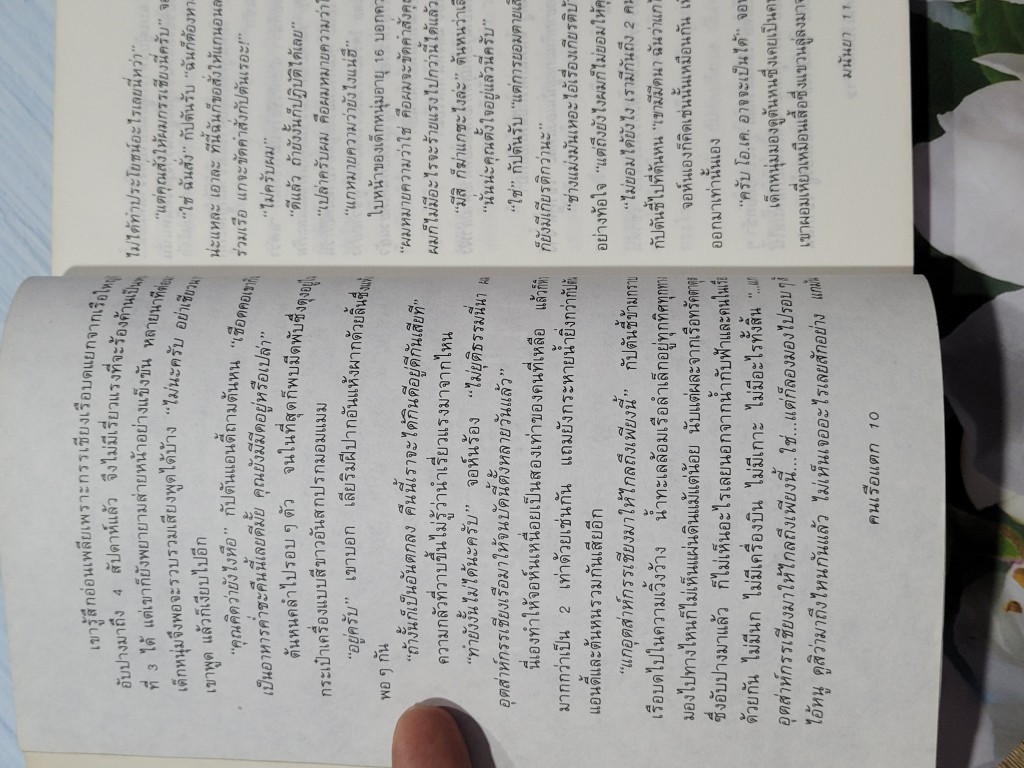 เขารู้สึกอ่อนเพลียเพราะกรรเชียงเรือบดแยกจากเรือใหญ่
อับปางมาถึง 4 สัปดาห์แล้ว จึงไม่มีเรี่ยวแรงที่จะร้องด้านเป็น
ที่ 3 ได้ แต่เขาก็ยังพยายามส่ายหน้าอย่างแข็งขัน หลายนาทีต่อ
เด็กหนุ่มจึงพอจะรวบรวมเสียงพูดได้บ้าง “ไม่นะครับ อย่าเชียว
เขาพูด แล้วก็เงียบไปอีก
“คุณคิดว่ายังไงหือ” กัปตันแอนดี้ถามต้นหน “เชือดคอเขา
เป็นอาหารค่ำซะคืนนี้เลยดีมั้ย คุณยังมีมีดอยู่หรือเปล่า”
ต้นหนคลำไปรอบๆ ตัว จนในที่สุดก็พบมีดพับซึ่งตุงอยู่ใน
กระเป๋าเครื่องแบบสีขาวอันสกปรกมอมแมม
“อยู่ครับ” เขาบอก เลียริมฝีปากอันแห้งผากด้วยลิ้นซึ่งแห้ง
พอๆ กัน
“ถ้างั้นก็เป็นอันตกลง คืนนี้เราจะได้กินดีอยู่ดีกันเสียที”
ความกลัวที่วาบขึ้นไม่รู้ว่านำเรี่ยวแรงมาจากไหน
“ทำยังงั้นไม่ได้นะครับ” จอห์นร้อง “ไม่ยุติธรรมนี่นา
อุตส่าห์กรรเชียงเรือมาให้จนป่นปี้ตั้งหลายวันแล้ว”
นี่เองทำให้จอห์นเหนื่อยเป็นสองเท่าของคนที่เหลือ แล้วก็
มากกว่าเป็น 2 เท่าด้วยเช่นกัน แถมยังกระหายน้ำยิ่งกว่ากัปตัน
แอนดี้และต้นหนรวมกันเสียอีก
“แกอุตส่าห์กรรเชียงมาให้ไกลถึงเพียงนี้” กัปตันชี้ข้ามกราบ
เรือบดไปในความเวิ้งว้าง น้ำทะเลล้อมเรือลำเล็กอยู่ทุกทิศทุกทาง
มองไปทางไหนก็ไม่เห็นแผ่นดินแม้แต่น้อย นับแต่ผละจากเรือ
ซึ่งอับปางมาแล้ว ก็ไม่เห็นอะไรเลยนอกจากน้ำกับฟ้าและคนในเรือ
ด้วยกัน ไม่มีนก ไม่มีเครื่องบิน ไม่มีเกาะ ไม่มีอะไรทั้งสิ้น “...แก
อุตส่าห์กรรเชียงมาให้ไกลถึงเพียงนี้... ใช่...แต่ก็ลองมองไปรอบๆ
ไอ้หนู ดูสิว่ามาถึงไหนกันแล้ว ไม่เห็นเจออะไรเลยสักอย่าง
คนเรือแตก 10
ไม่ได้ทำประโยชน์อะไรเลยนี่หว่า”
“แต่คุณสั่งให้ผมกรรเชียงนี่ครับ”
“ใช่ ฉันสั่ง” กัปตันรับ “ฉันก็ต้อง
น่ะแหละ เอาละ ทีนี้ฉันก็ขอสั่งให้แกนอน
ร่วมเรือ แกจะขัดคำสั่งกัปตันเรอะ!”
“ไม่ครับผม”
“ดีแล้ว ถ้ายังงั้นก็ปฏิบัติได้เลย”
“เปล่าครับผม คือผมหมายความว่า
“แกหมายความว่ายังไงแน่ฮึ”
ใบหน้าของเด็กหนุ่มอายุ 16 บอก
“ผมหมายความว่าใช่ คือผมจะขัดคำสั่ง
ผมก็ไม่มีอะไรจะร้ายแรงไปกว่านี้ได้แล้ว
“มีสิ ก็ฆ่าแกซะไงล่ะ” ต้นหนว่า
“นั่นน่ะคุณตั้งใจอยู่แล้วนี่ครับ”
“ใช่” กัปตันรับ “แต่การยอมตาย
ก็ยังมีเกียรติกว่านะ”
“ช่างแม่งมันเหอะไอ้เรื่องเกียรติ
อย่างท้อใจ “แต่ถึงยังไงผมก็ไม่ยอมให้
“ไม่ยอมได้ยังไง เรามีกันถึง 2 คน
กัปตันชี้ไปที่ต้นหน “เขามีมีดนา ฉัน
จอห์นเองก็คิดเช่นนั้นเหมือนกัน
ออกมาเท่านั้นเอง
“ครับ โอ.เค. อาจจะเป็นได้”
เด็กหนุ่มมองดูต้นหนซึ่งเคยเป็น
เขาผอมเหี่ยวเหมือนเสื้อซึ่งแขวนอยู่
มนันยา 11